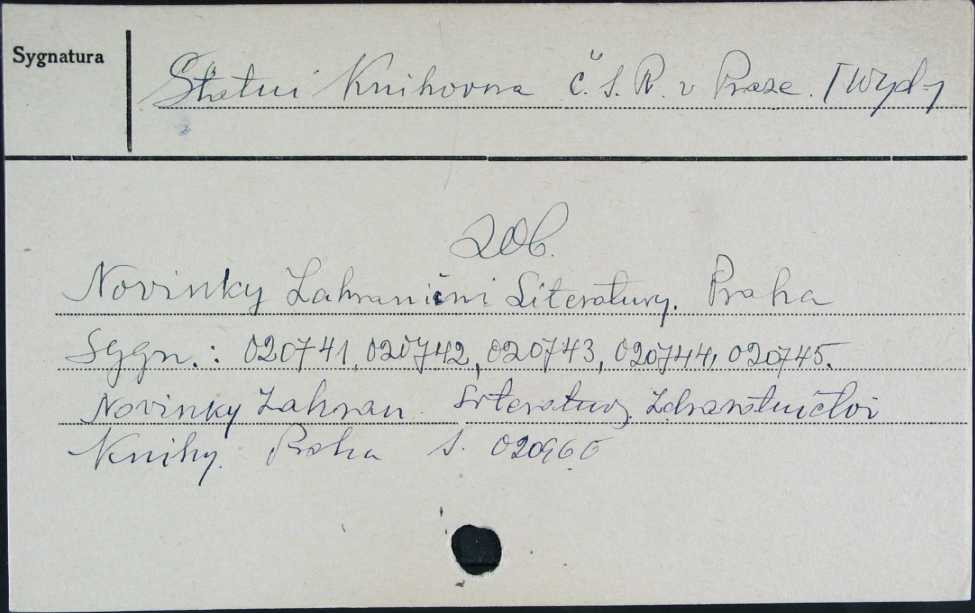 Sygnatura
Statni Knihovna Č.S.R. v Praze. [Wyd-]
Zob.
Novinky Zahranični Literatury. Praha
Sygn.: 020741, 020742, 020743, 020744, 020745.
Novinky Zahran. Literatury. Zdravotnictvi
Knihy. Praha S.